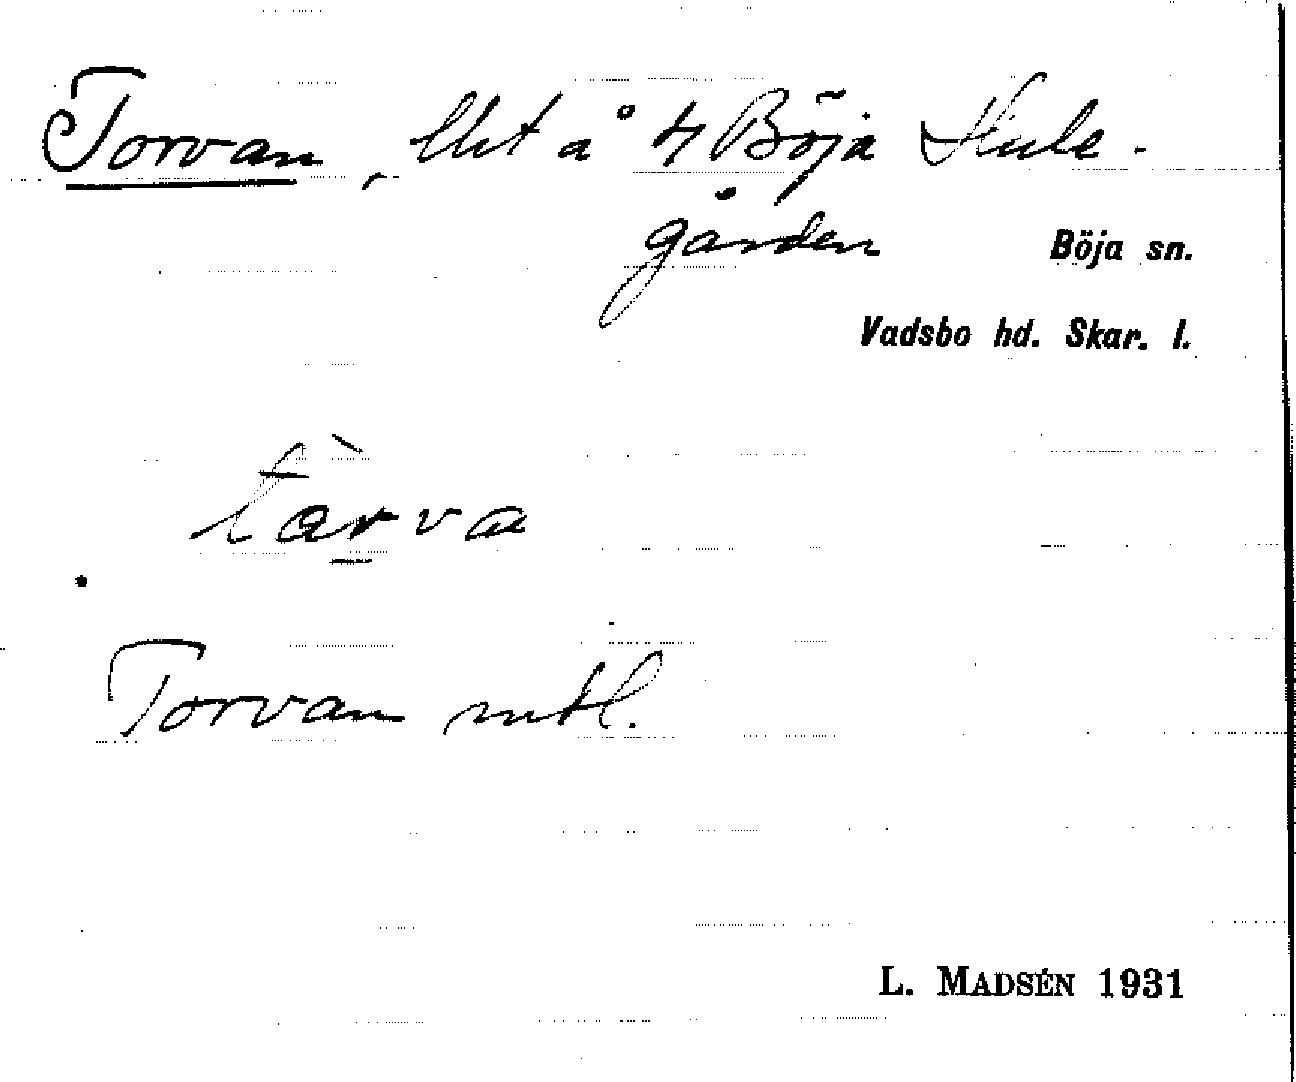 Torvan, lht å 4 Böja Skule-
gården Böja sn.
Vadsbo hd. Skar. l.
tàrva
Torvan mtl.
L. MADSÉN 1931